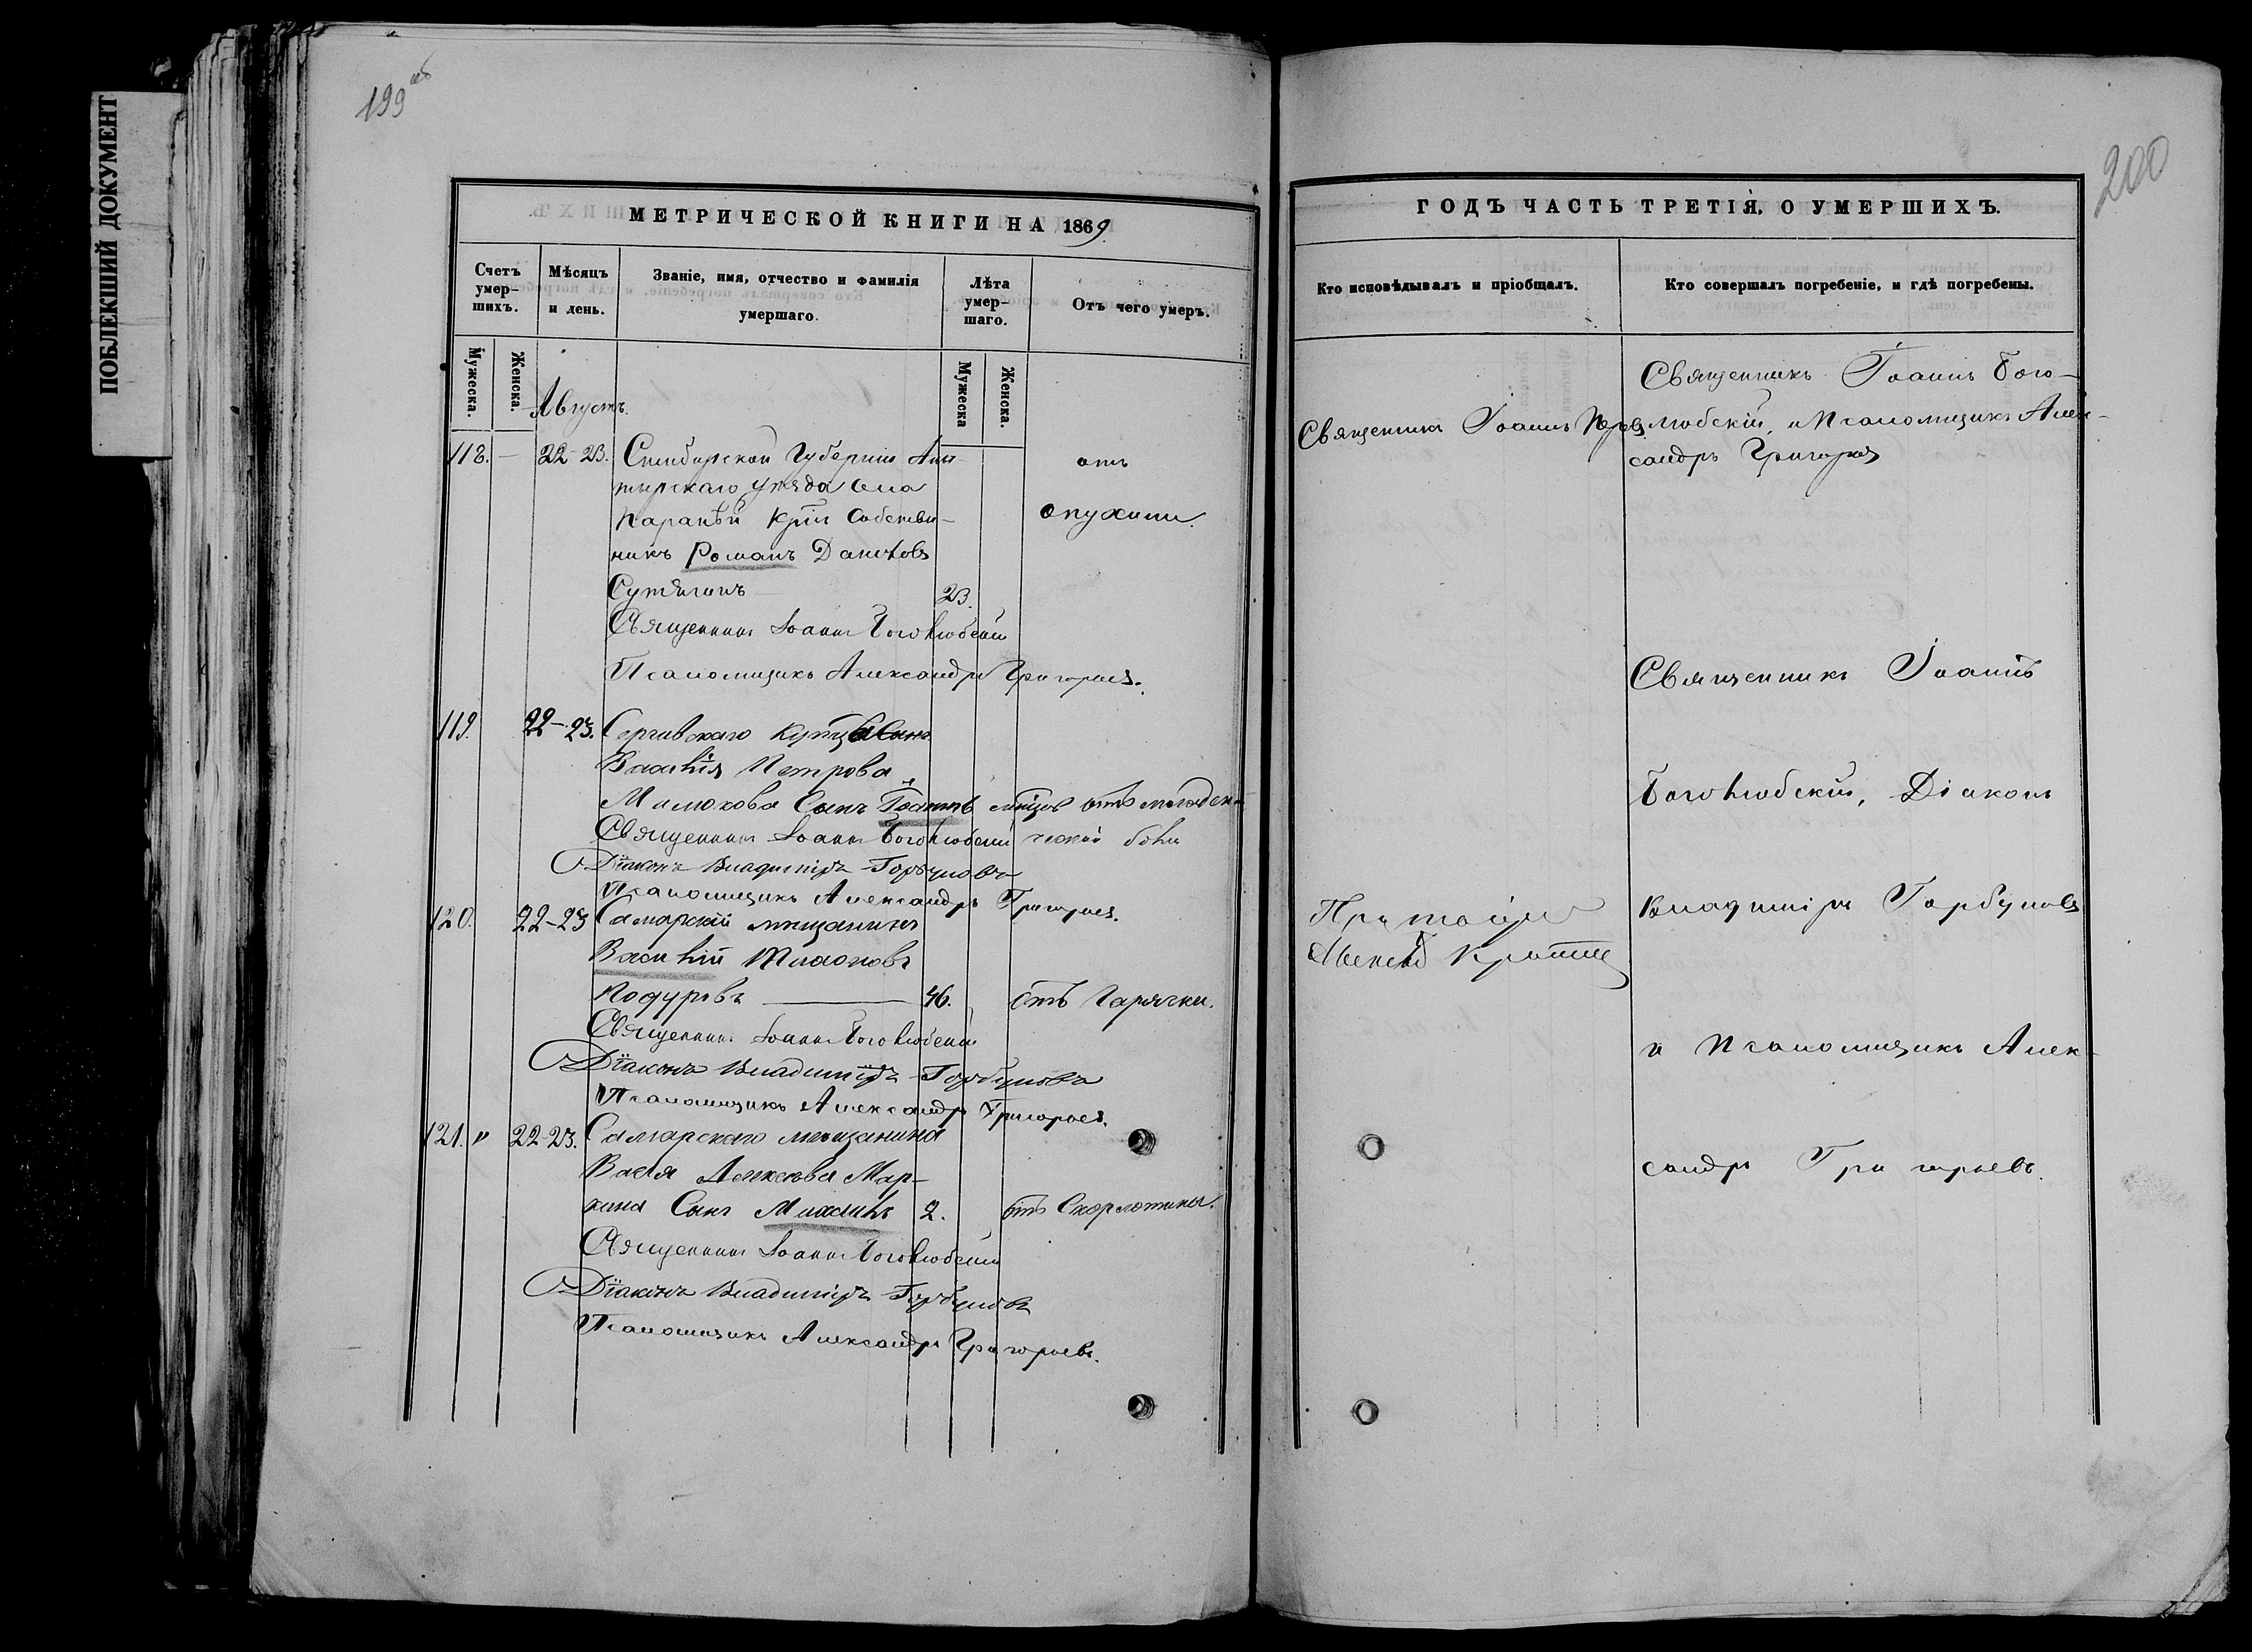 ПОБЛЕКШИЙ ДОКУМЕНТ
199 об
МЕТРИЧЕСКОЙ КНИГИ НА 1869
Счетъ умер-шихъ.
Мѣсяцъ и день.
Званіе, имя, отчество и фамилія умершаго.
Лѣта умер-шаго.
Отъ чего умеръ.
Мужеска.
Женска.
Мужеска
Женска.
Августъ.
118. — 22-23. Симбирской Губерніи Ала- отъ
тырскаго уѣзда села
собствен- опухоли.
никъ Романъ Даниловъ
Сутягинъ 23.
Священникъ Іоаннъ Боголюбскій
Псаломщикъ Александръ Григорьевъ.
119. 22-23. Сергивскаго
Василія Петрова
Малюкова Сынъ Іоаннъ отъ младен-
Священникъ Іоаннъ Боголюбскій ческой боли
Діаконъ Владиміръ Горбуновъ
Псаломщикъ Александръ Григорьевъ.
120. 22-23 Самарскій мѣщанинъ
Василій
Кодуровъ — 46. отъ Горячки.
Священникъ Іоаннъ Боголюбскій
Діаконъ Владиміръ Горбуновъ
Псаломщикъ Александръ Григорьевъ.
121. " 22-23. Самарскаго мѣщанина
Василія Алексѣева Мар-
кина Сынъ Михаилъ 2. отъ Скорлотины.
Священникъ Іоаннъ Боголюбскій
Діаконъ Владиміръ Горбуновъ
Псаломщикъ Александръ Григорьевъ.
200
ГОДЪ ЧАСТЬ ТРЕТІЯ, О УМЕРШИХЪ.
Кто исповѣдывалъ и пріобщалъ.
Кто совершалъ погребеніе, и гдѣ погребены.
Священникъ Іоаннъ Бого-
Священникъ Іоаннъ
любскій, и Псаломщикъ Алек-
сандръ Григорьевъ
Священникъ Іоаннъ
Боголюбскій, Діаконъ
Владиміръ Горбуновъ
и Псаломщикъ Алек-
сандръ Григорьевъ.